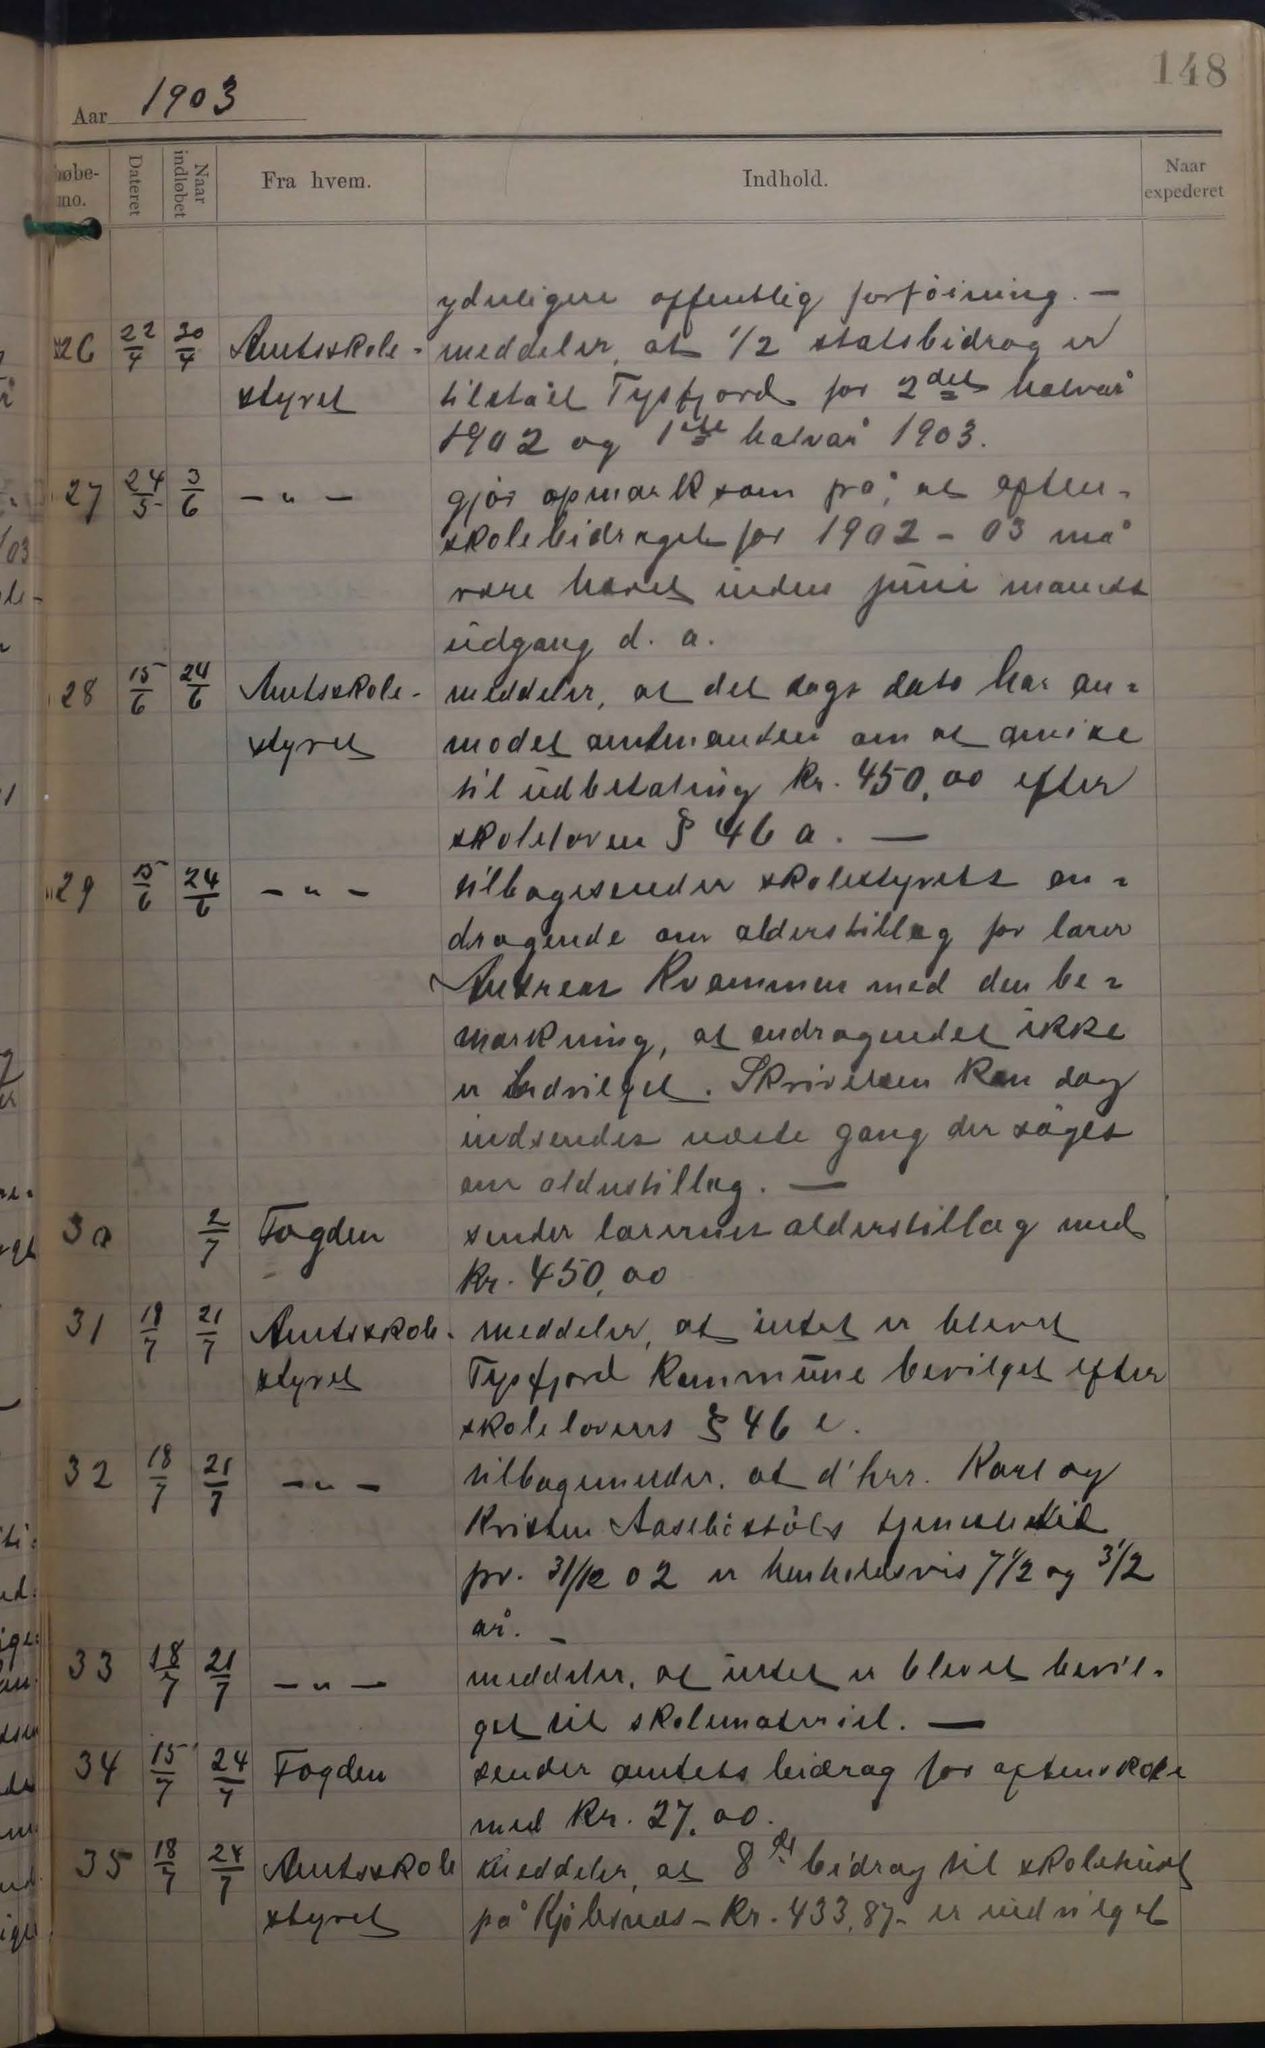 148
Aar 1903
løbe-
mo.
Dateret
Naar
indløbet
Fra hvem.
Indhold.
Naar
expederet
yderligere offentlig forföining. —
26 22/4 30/4 Amtsskole- meddeler, at 1/2 statsbidrag er
styret tilstået Tysfjord for 2det halvår
1902 og 1ste halvår 1903.
27 24/5 3/6 — " — gjör opmærksom på, at aften-
skolebidraget for 1902 - 03 må
være hævet inden juni måneds
udgang d. a.
28 15/6 24/6 Amtsskole- meddeler, at det dags dato har an-
styret modet amtmanden om at anvise
til udbetaling kr. 450,00 efter
skoleloven § 46 a. —
29 15/6 24/6 — " — tilbagesender skolestyrets an-
dragende om alderstillæg for lærer
Andreas Kvammen med den be-
mærkning, at andragendet ikke
er indvilget. Skrivelsen kan dog
indsendes næste gang der söges
om alderstillæg. —
30 2/7 Fogden sender lærernes alderstillæg med
kr. 450,00
31 18/7 21/7 Amtsskole- meddeler, at intet er blevet
styret Tysfjord kommune bevilget efter
skolelovens § 46 e.
32 18/7 21/7 — " — at d'hrr. Karl og
Kristen tjenestetid
pr. 31/12 02 er henholdsvis 7 1/2 og 3 1/2
år. —
33 18/7 21/7 — " — meddeler, at intet er blevet bevil-
get til skolemateriel. —
34 15/7 24/7 Fogden sender amtets bidrag for aftenskole
med kr. 27,00.
35 18/7 24/7 Amtsskole meddeler, at 8de bidrag til skolehuset
styret på Kjöbsnæs - kr. 433,87 - er indvilget